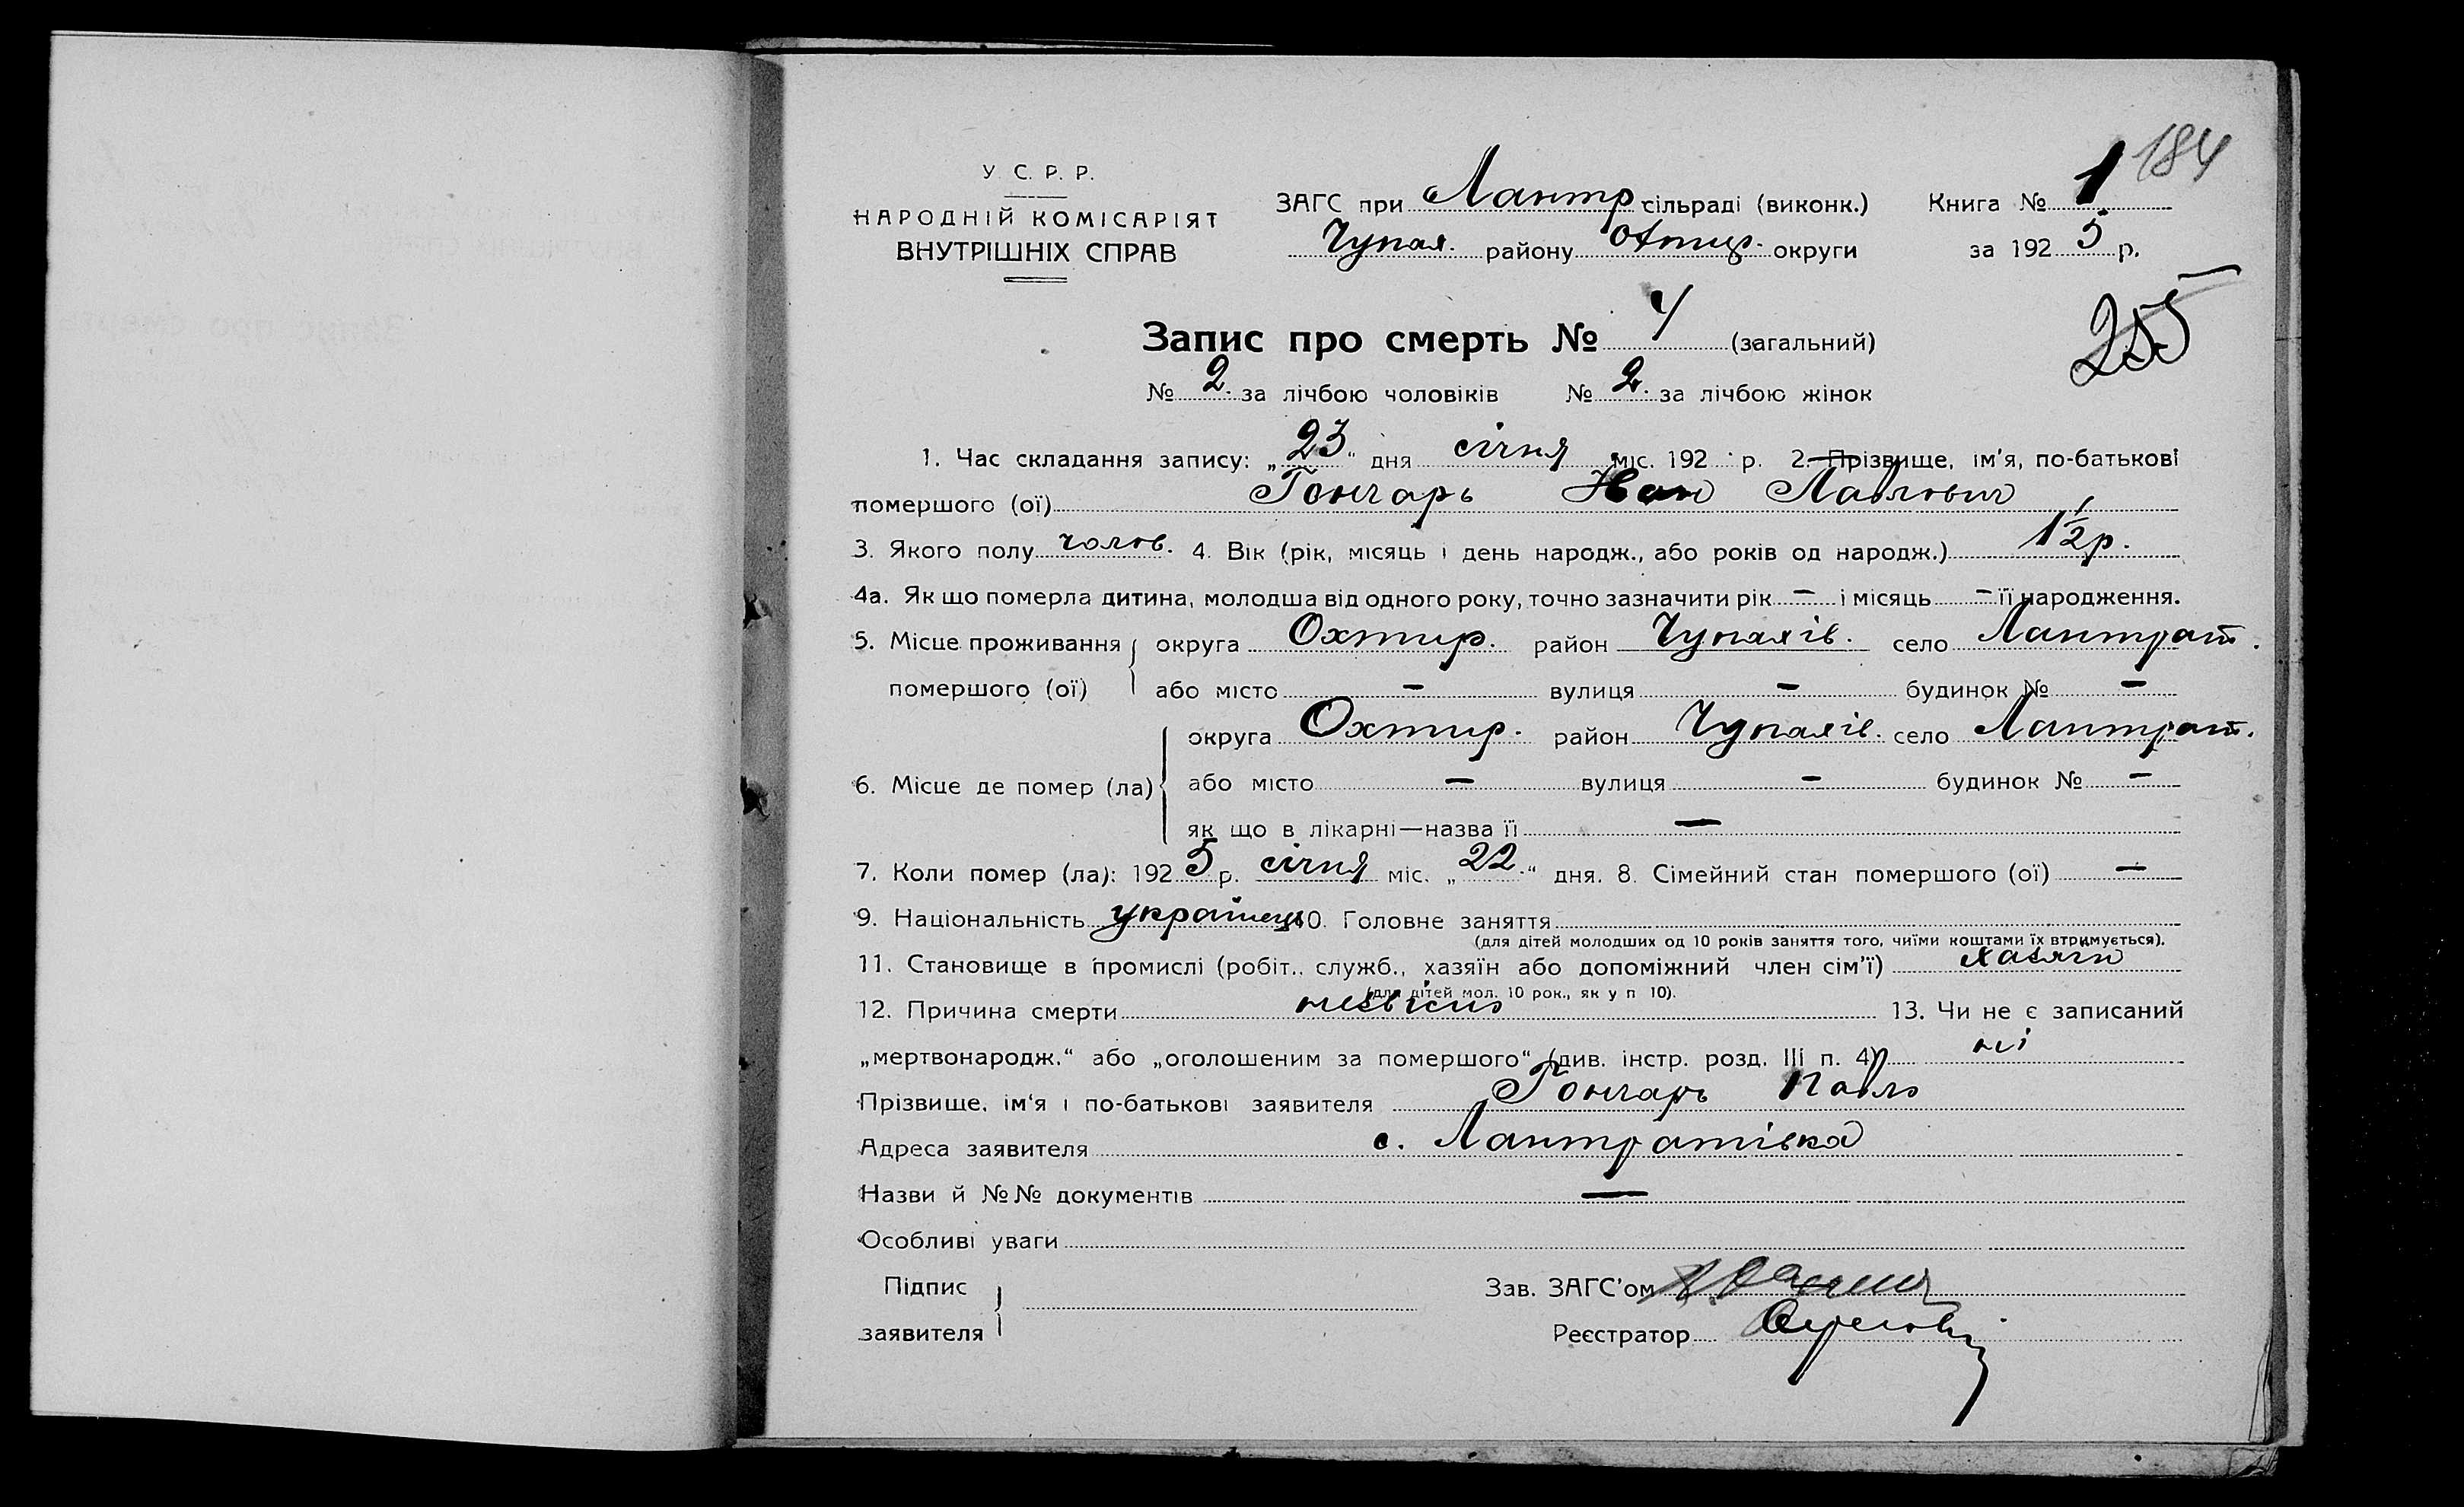 184
У С. Р. Р.
НАРОДНІЙ КОМІСАРІЯТ
ВНУТРІШНІХ СПРАВ
ЗАГС при Лантр сільраді (виконк.) Книга № 1
Чупах. району Охтир. округи за 1925 р.
Запис про смерть № 4 (загальний)
255
№ 2. за лічбою чоловіків № 2. за лічбою жінок
1. Час складання запису: „23“ дня січня міс. 192 р. 2. Прізвище, ім'я, по-батькові
помершого (ої) Гончарь Іван Павлович
3. Якого полу чолов. 4. Вік (рік, місяць і день народж., або років од народж.) 1½ р.
4а. Як що померла дитина, молодша від одного року, точно зазначити рік — і місяць — її народження.
5. Місце проживання округа Охтир. район Чупахів. село Лантрат.
помершого (ої) або місто — вулиця — будинок № —
округа Охтир. район Чупахів. село Лантрат.
6. Місце де помер (ла) або місто — вулиця — будинок № —
як що в лікарні—назва її —
7. Коли помер (ла): 1925 р. січня міс. „22.“ дня. 8. Сімейний стан помершого (ої) —
9. Національність українець 10. Головне заняття
(для дітей молодших од 10 років заняття того, чиїми коштами їх втримується).
11. Становище в промислі (робіт., служб., хазяїн або допоміжний член сім'ї) хазяїн
(для дітей мол. 10 рок., як у п 10).
12. Причина смерти невісно 13. Чи не є записаний
„мертвонародж.“ або „оголошеним за помершого“ (див. інстр. розд. III п. 4) ні
Прізвище, ім'я і по-батькові заявителя Гончарь Павло
Адреса заявителя с. Лантратівка
Назви й №№ документів —
Особливі уваги
Підпис Зав. ЗАГС'ом
заявителя Реєстратор